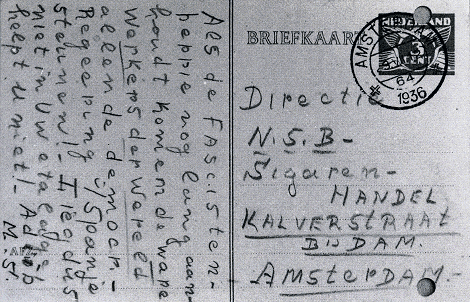 Als de FAscisten-
happie nog lang aan-
houdt komen de ware
Werkers der Wereld
allen de demoor.
Regeering/Spanje
steunen!
niet in Uw etalage
helpt U niet!
M. S.
BRIEFKAART
NEDERLAND
3
CENT
AMST
1936
Directie
N.S.B-
Sigaren-
HANDEL
KALVERSTRAAT
BIJ DAM.
AMsterDAM-